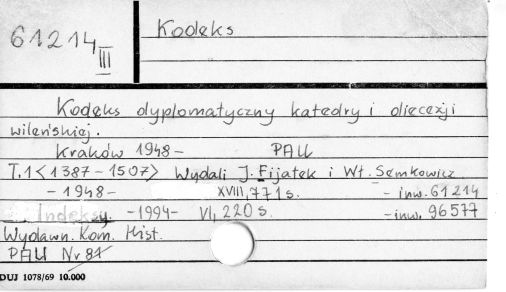 61214
III
Kodeks
Kodeks dyplomatyczny katedry i diecezji
wileńskiej.
Kraków 1948 - PAU
T.1 <1387-1507> Wydali J. Fijałek i Wł. Semkowicz
- 1948 - XVIII, 771 s. - inw. 61214
Indeksy. - 1994 - VI, 220 s. - inw. 96577
Wydawn. Kom. Hist.
PAU Nr 81
DUJ 1078/69 10.000